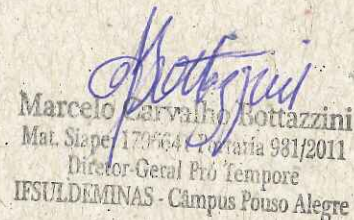 Bottazzini
Marcelo Carvalho Bottazzini
Mat. Siape Portaria 981/2011
Diretor-Geral Pró Tempore
IFSULDEMINAS - Câmpus Pouso Alegre